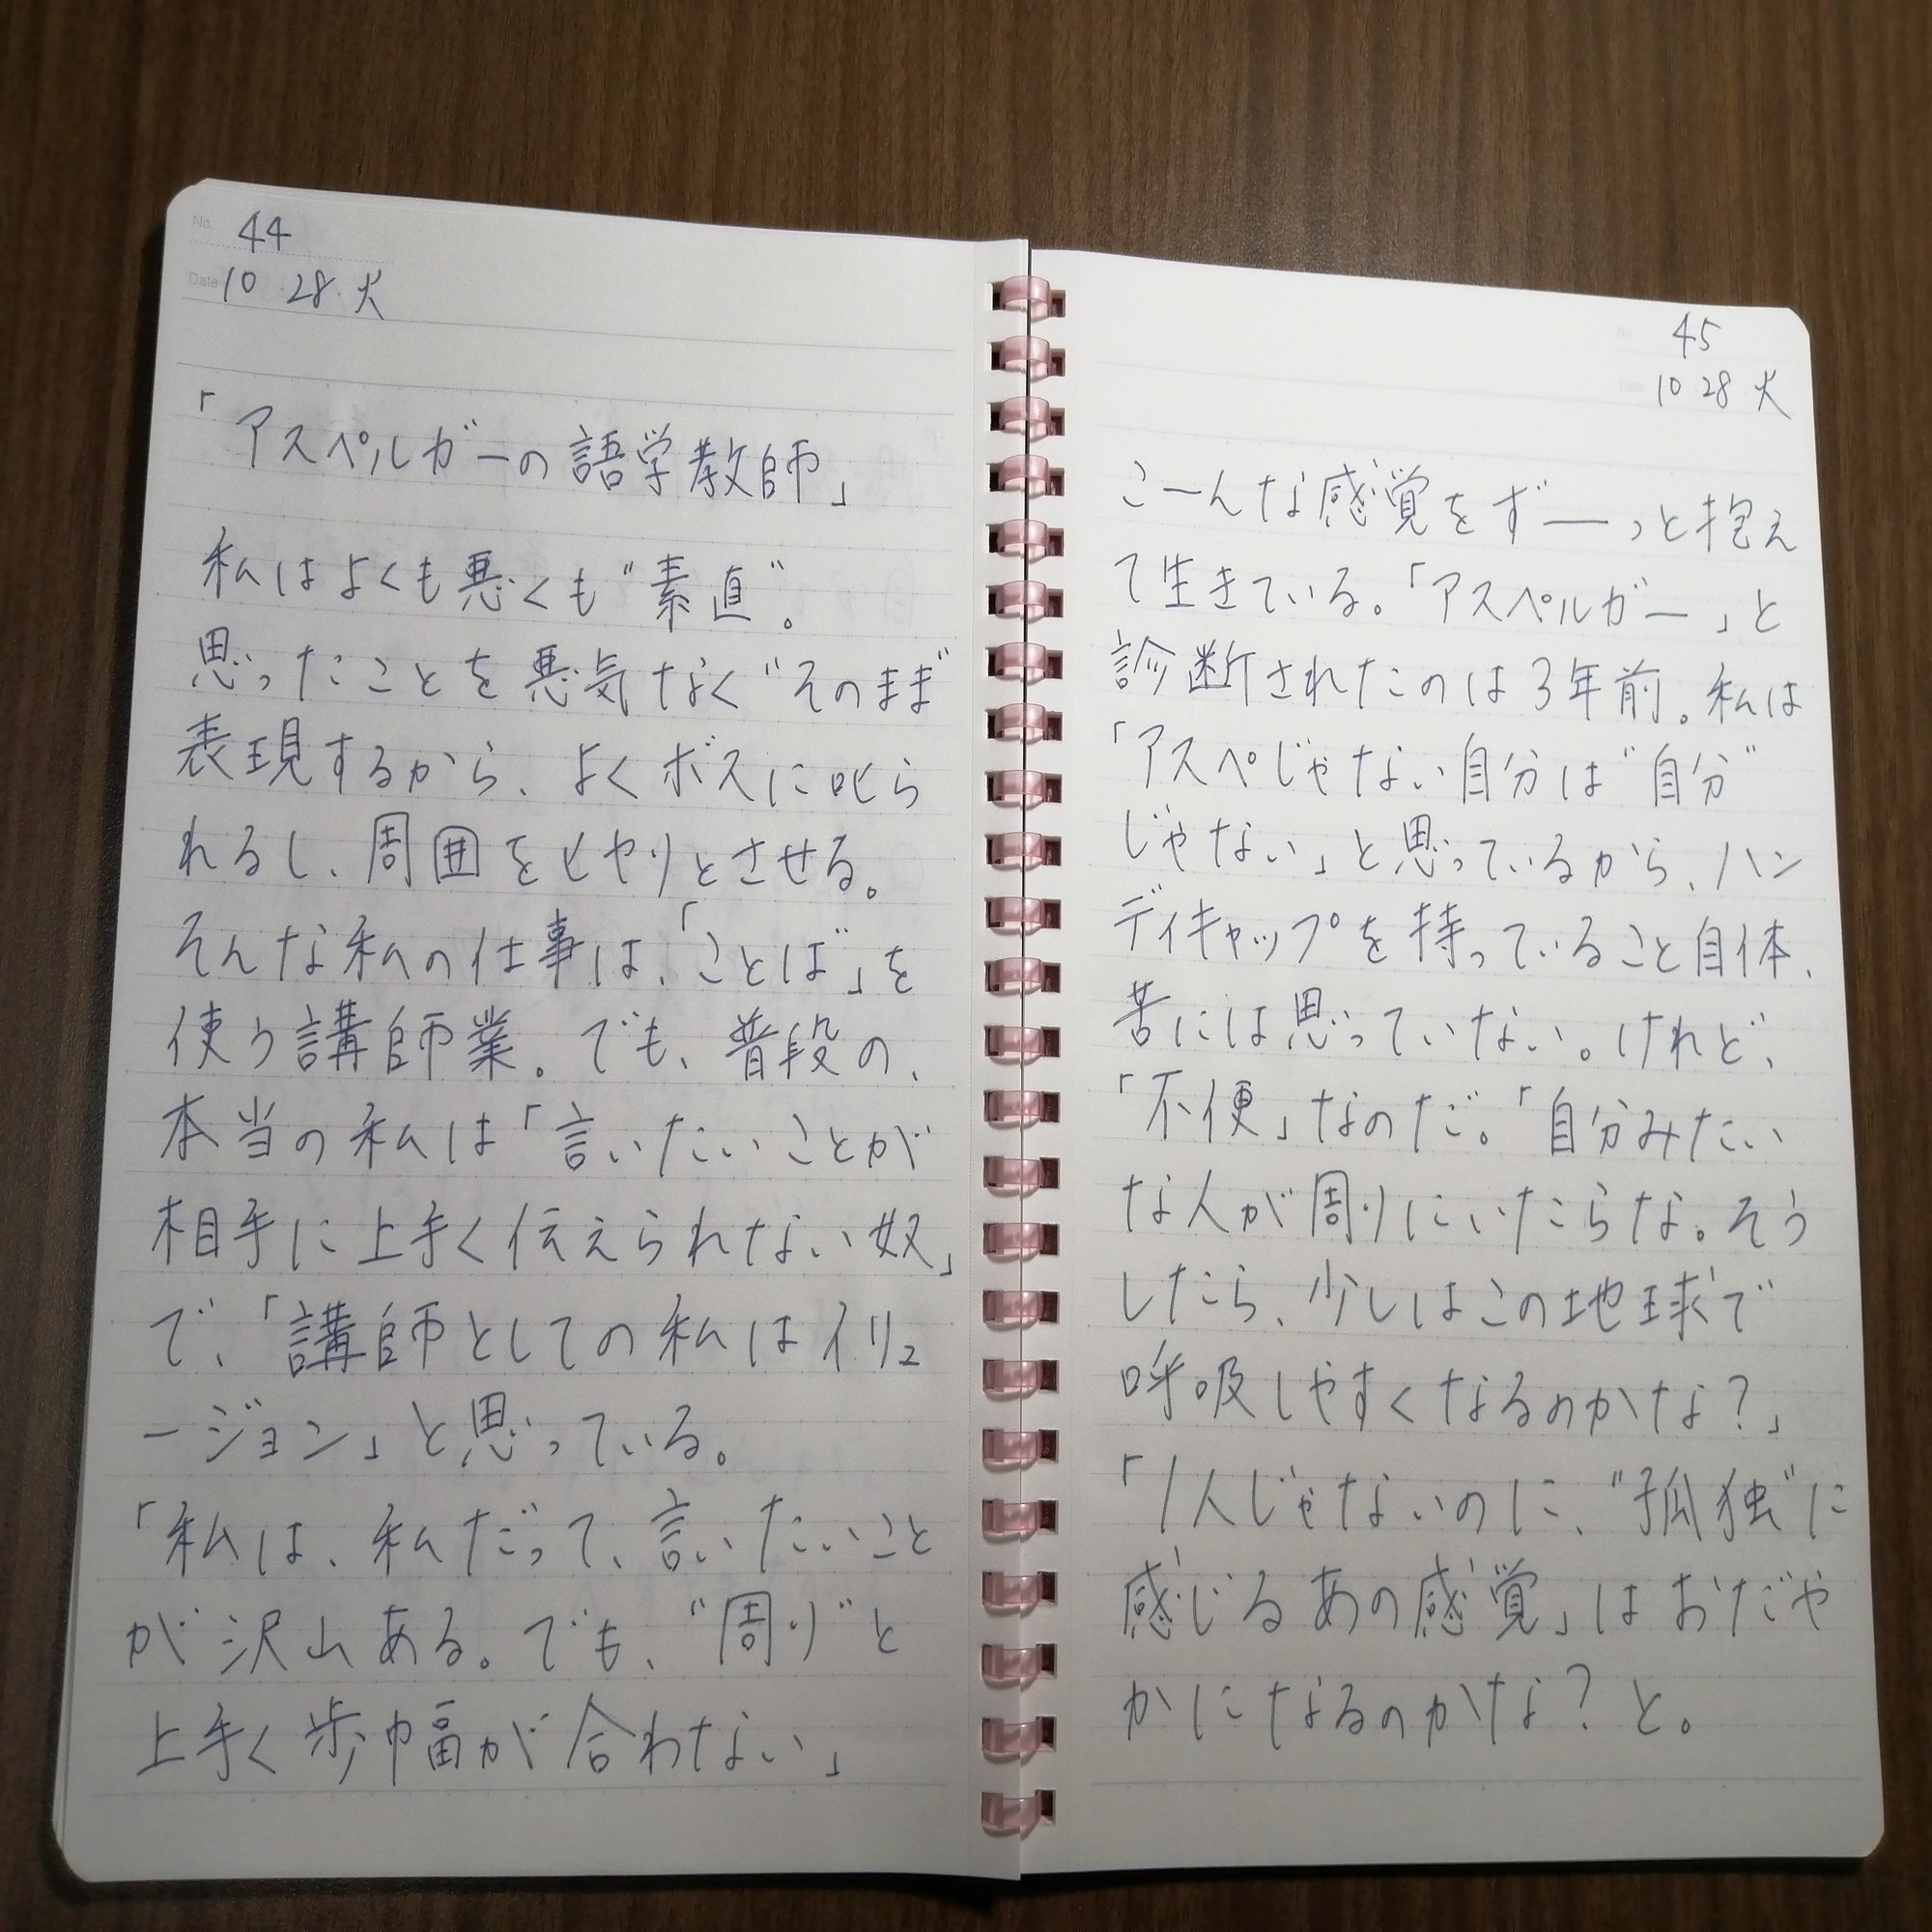 No. 44
Date 10 28 火
「アスペルガーの語学教師」
私はよくも悪くも"素直"。
思ったことを悪気なく"そのまま"
表現するから、よくボスに叱ら
れるし、周囲をヒヤリとさせる。
そんな私の仕事は、「ことば」を
使う講師業。でも、普段の、
本当の私は「言いたいことが
相手に上手く伝えられない奴」
で、「講師としての私はイリュ
ージョン」と思っている。
「私は、私だって、言いたいこと
が沢山ある。でも、"周り"と
上手く歩幅が合わない」
No. 45
Date 10 28 火
こーんな感覚をずーっと抱え
て生きている。「アスペルガー」と
診断されたのは3年前。私は
「アスペじゃない自分は"自分"
じゃない」と思っているから、ハン
ディキャップを持っていること自体、
苦には思っていない。けれど、
「不便」なのだ。「自分みたい
な人が周りにいたらな。そう
したら、少しはこの地球で
呼吸しやすくなるのかな?」
「1人じゃないのに、"孤独"に
感じるあの感覚」はおだや
かになるのかな?と。